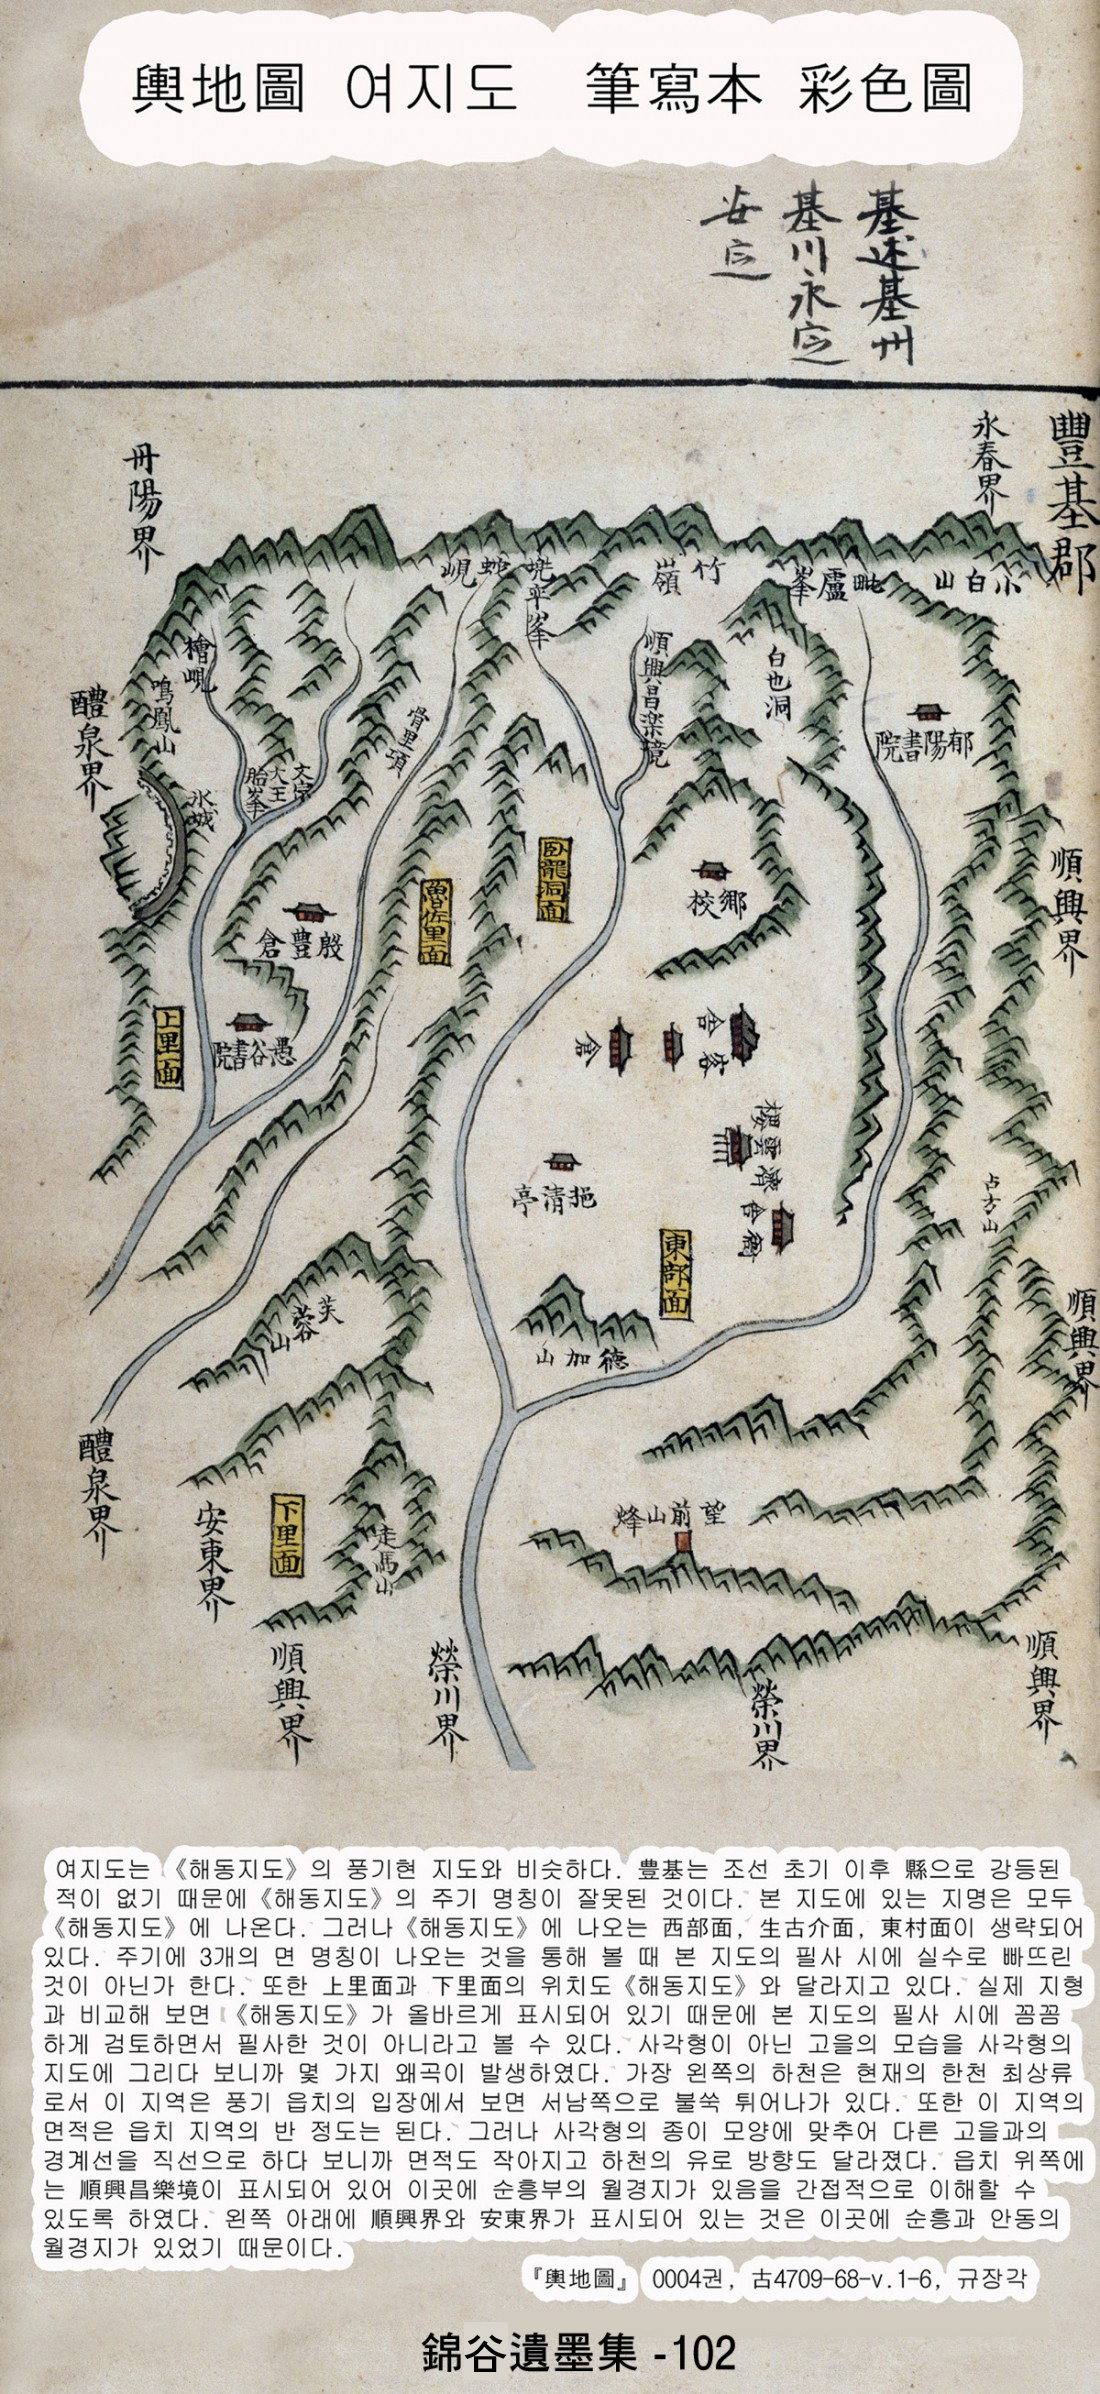 輿地圖 여지도 筆寫本 彩色圖
基述基州
基川永定
安定
豐基郡
永春界
丹陽界
小白山
毗盧峯
竹嶺
兜率峯
蛇峴
檜峴
鳴鳳山
醴泉界
順興昌楽境
白也洞
郁陽書院
骨里項
文宗
大王
胎峯
臥龍洞面
魯佐里面
順興界
鄉校
殷豊倉
上里面
愚谷書院
客舍
倉
濟雲樓
衙舍
挹清亭
東部面
占方山
順興界
芙蓉山
德加山
醴泉界
安東界
下里面
走馬山
望前山烽
順興界
榮川界
榮川界
順興界
여지도는 《해동지도》의 풍기현 지도와 비슷하다. 豊基는 조선 초기 이후 縣으로 강등된
적이 없기 때문에《해동지도》의 주기 명칭이 잘못된 것이다. 본 지도에 있는 지명은 모두
《해동지도》에 나온다. 그러나《해동지도》에 나오는 西部面, 生古介面, 東村面이 생략되어
있다. 주기에 3개의 면 명칭이 나오는 것을 통해 볼 때 본 지도의 필사 시에 실수로 빠뜨린
것이 아닌가 한다. 또한 上里面과 下里面의 위치도《해동지도》와 달라지고 있다. 실제 지형
과 비교해 보면 《해동지도》가 올바르게 표시되어 있기 때문에 본 지도의 필사 시에 꼼꼼
하게 검토하면서 필사한 것이 아니라고 볼 수 있다. 사각형이 아닌 고을의 모습을 사각형의
지도에 그리다 보니까 몇 가지 왜곡이 발생하였다. 가장 왼쪽의 하천은 현재의 한천 최상류
로서 이 지역은 풍기 읍치의 입장에서 보면 서남쪽으로 불쑥 튀어나가 있다. 또한 이 지역의
면적은 읍치 지역의 반 정도는 된다. 그러나 사각형의 종이 모양에 맞추어 다른 고을과의
경계선을 직선으로 하다 보니까 면적도 작아지고 하천의 유로 방향도 달라졌다. 읍치 위쪽에
는 順興昌樂境이 표시되어 있어 이곳에 순흥부의 월경지가 있음을 간접적으로 이해할 수
있도록 하였다. 왼쪽 아래에 順興界와 安東界가 표시되어 있는 것은 이곳에 순흥과 안동의
월경지가 있었기 때문이다.
『輿地圖』 0004권, 古4709-68-v.1-6, 규장각
錦谷遺墨集 -102